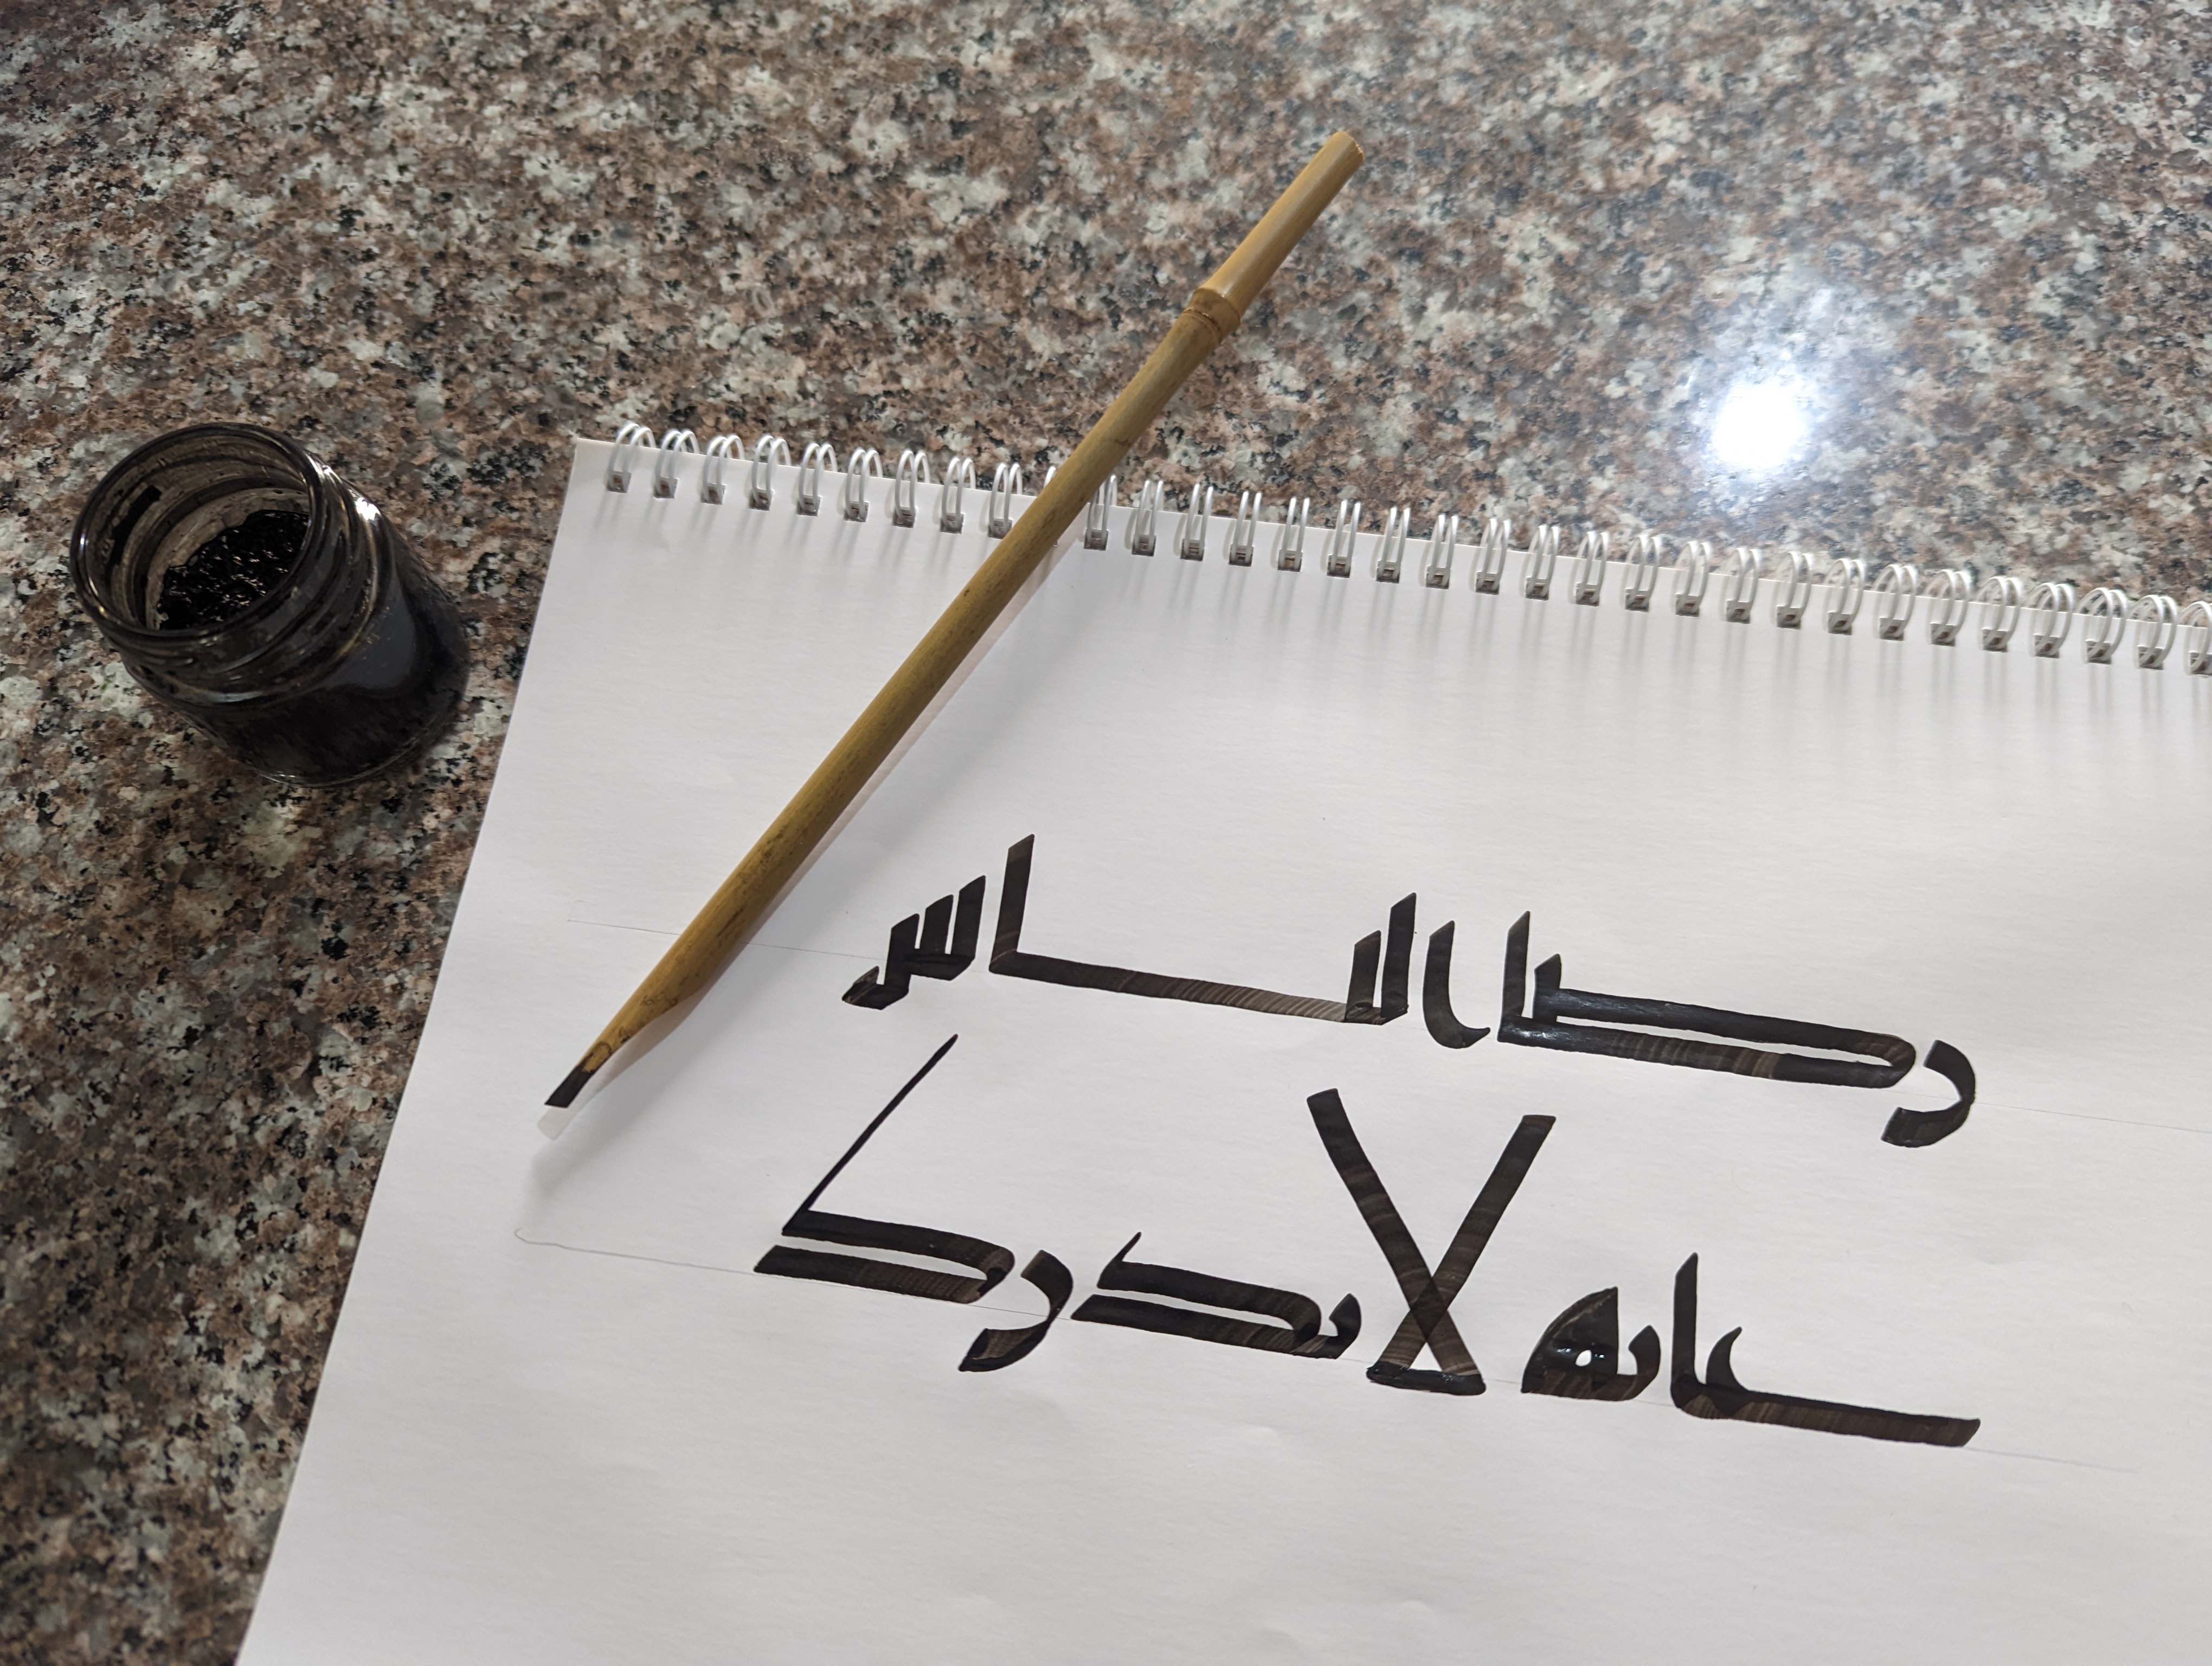 رضا الناس
غاية لا تدرك